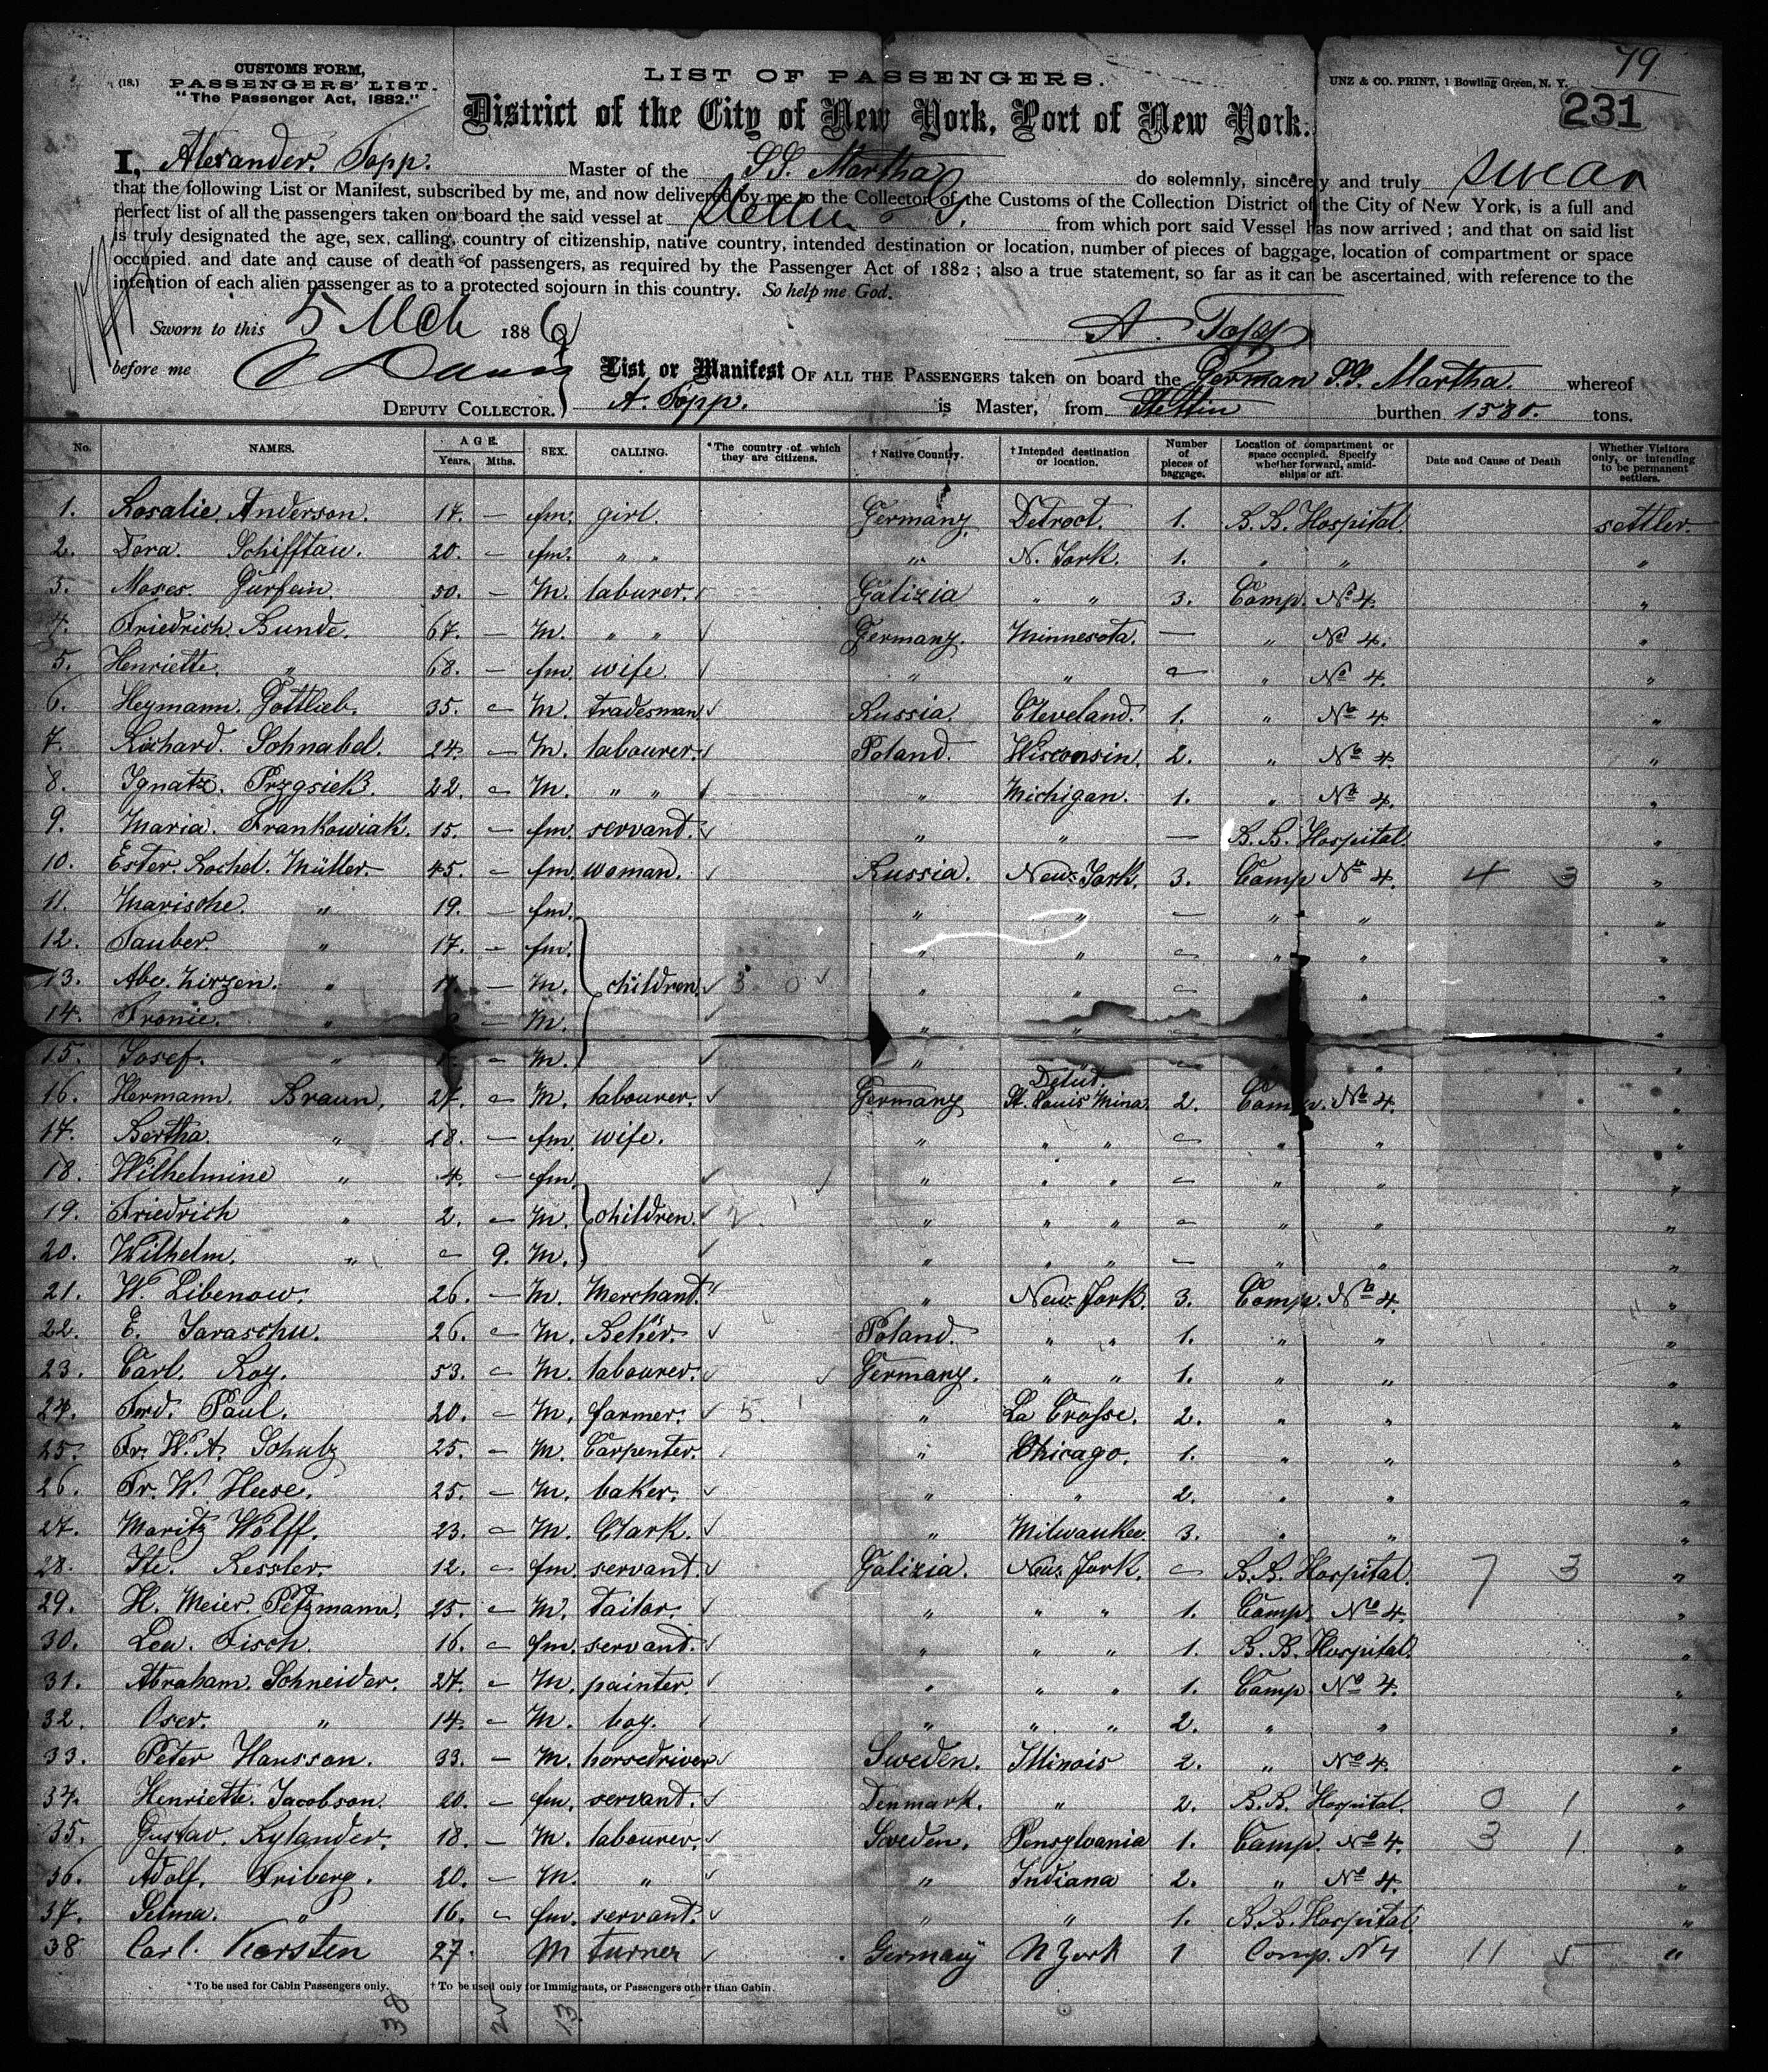 79
(18.) CUSTOMS FORM, PASSENGERS' LIST. "The Passenger Act, 1882."
LIST OF PASSENGERS.
UNZ & CO. PRINT, 1 Bowling Green, N. Y.
231
District of the City of New York, Port of New York.
I, Alexander. Topp. Master of the S.S. Martha do solemnly, sincerely and truly swear
that the following List or Manifest, subscribed by me, and now delivered by me to the Collector of the Customs of the Collection District of the City of New York, is a full and
perfect list of all the passengers taken on board the said vessel at Stettin from which port said Vessel has now arrived ; and that on said list
is truly designated the age, sex, calling, country of citizenship, native country, intended destination or location, number of pieces of baggage, location of compartment or space
occupied. and date and cause of death of passengers, as required by the Passenger Act of 1882 ; also a true statement, so far as it can be ascertained, with reference to the
intention of each alien passenger as to a protected sojourn in this country. So help me God.
Sworn to this 5 Mch 1886 A. Topp
before me Davis List or Manifest OF ALL THE PASSENGERS taken on board the German S.S. Martha. whereof
DEPUTY COLLECTOR. A. Topp. is Master, from Stettin burthen 1580. tons.
No. NAMES. AGE. Years. Mths. SEX. CALLING. *The country of which they are citizens. † Native Country. † Intended destination or location. Number of pieces of baggage. Location of compartment or space occupied. Specify whether forward, amidships or aft. Date and Cause of Death Whether Visitors only, or intending to be permanent settlers.
1. Rosalie. Anderson. 17. — fm. girl. Germany. Detroct. 1. B.B. Hospital. settler.
2. Dora. Schifftau. 20. — fm. " " " N. York. 1. " " "
3. Moses. Gurfein. 30. — M. laburer. Galizia " " 3. Comp. No 4. "
4. Friedrich. Bunde. 67. — M. " " Germany. Minnesota. — " No 4. "
5. Henriette. " 68. — fm. wife. " " — " No 4. "
6. Heymann. Gottlieb. 35. — M. tradesman Russia. Cleveland. 1. " No 4. "
7. Richard. Schnabel. 24. — M. labourer. Poland. Wisconsin. 2. " No 4. "
8. Ignatz. Przgsiek. 22. — M. " " " Michigan. 1. " No 4. "
9. Maria. Frankowiak. 15. — fm. servant. " " — B.B. Hospital. "
10. Ester. Rochel. Müller. 45. — fm. woman. Russia. New York. 3. Comp No 4. 4 3 "
11. Marische. " 19. — fm. " " — " " "
12. Tauber. " 17. — fm. " " — " " "
13. Abe. Hirzen. " — M. children. 3 0 " " — " "
14. Fronie. " — M. " " "
15. Josef. " — M. " "
16. Hermann. Braun. 27. — M. labourer. Germany St. Louis Mina. 2. Comp. No 4. "
17. Bertha. " 28. — fm. wife. " " " — " " "
18. Wilhelmine " 4. — fm. " " " — " " "
19. Friedrich " 2. — M. children. 2. " " " — " " "
20. Wilhelm. " — 9. M. " " " — " " "
21. W. Libenow. 26. — M. Merchant. " New York. 3. Comp. No 4. "
22. E. Saraschu. 26. — M. Beker. Poland. " " 1. " " "
23. Carl. Roy. 53. — M. labourer. Germany. " " 1. " " "
24. Ferd. Paul. 20. — M. farmer. 5. " La Crosse. 2. " " "
25. Fr. W. A. Schulz 25. — M. Carpenter. " Chicago. 1. " " "
26. Fr. W. Heese. 25. — M. baker. " " 2. " " "
27. Moritz Wolff. 23. — M. Clark. " Milwaukee 3. " " "
28. Ite. Kessler. 12. — fm. servant. Galizia. New York. — B.B. Hospital. 7 3 "
29. H. Meier. Petzmann. 25. — M. tailor. " " " 1. Comp. No 4. "
30. Lea. Fisch. 16. — fm. servant. " " " 1. B.B. Hospital. "
31. Abraham. Schneider. 27. — M. painter. " " " 1. Comp. No 4. "
32. Oser. " 14. — M. boy. " " " 2. " " "
33. Peter Hansson. 33. — M. horsedriver Sweden. Illinois 2. " No 4. "
34. Henriette. Jacobson. 20. — fm. servant. Denmark. " 2. B.B. Hospital. 0 1 "
35. Gustav. Rylander. 18. — M. labourer. Sweden. Pensylvania 1. Comp. No 4. 3 1 "
36. Adolf. Friberg. 20. — M. " " Indiana 2. " No 4. "
37. Selma. " 16. — fm. servant. " " 1. B.B. Hospital. "
38 Carl. Karsten 27. M turner Germany N York 1 Comp. N 4 11 5 "
* To be used for Cabin Passengers only. † To be used only for Immigrants, or Passengers other than Cabin.
38 25 13